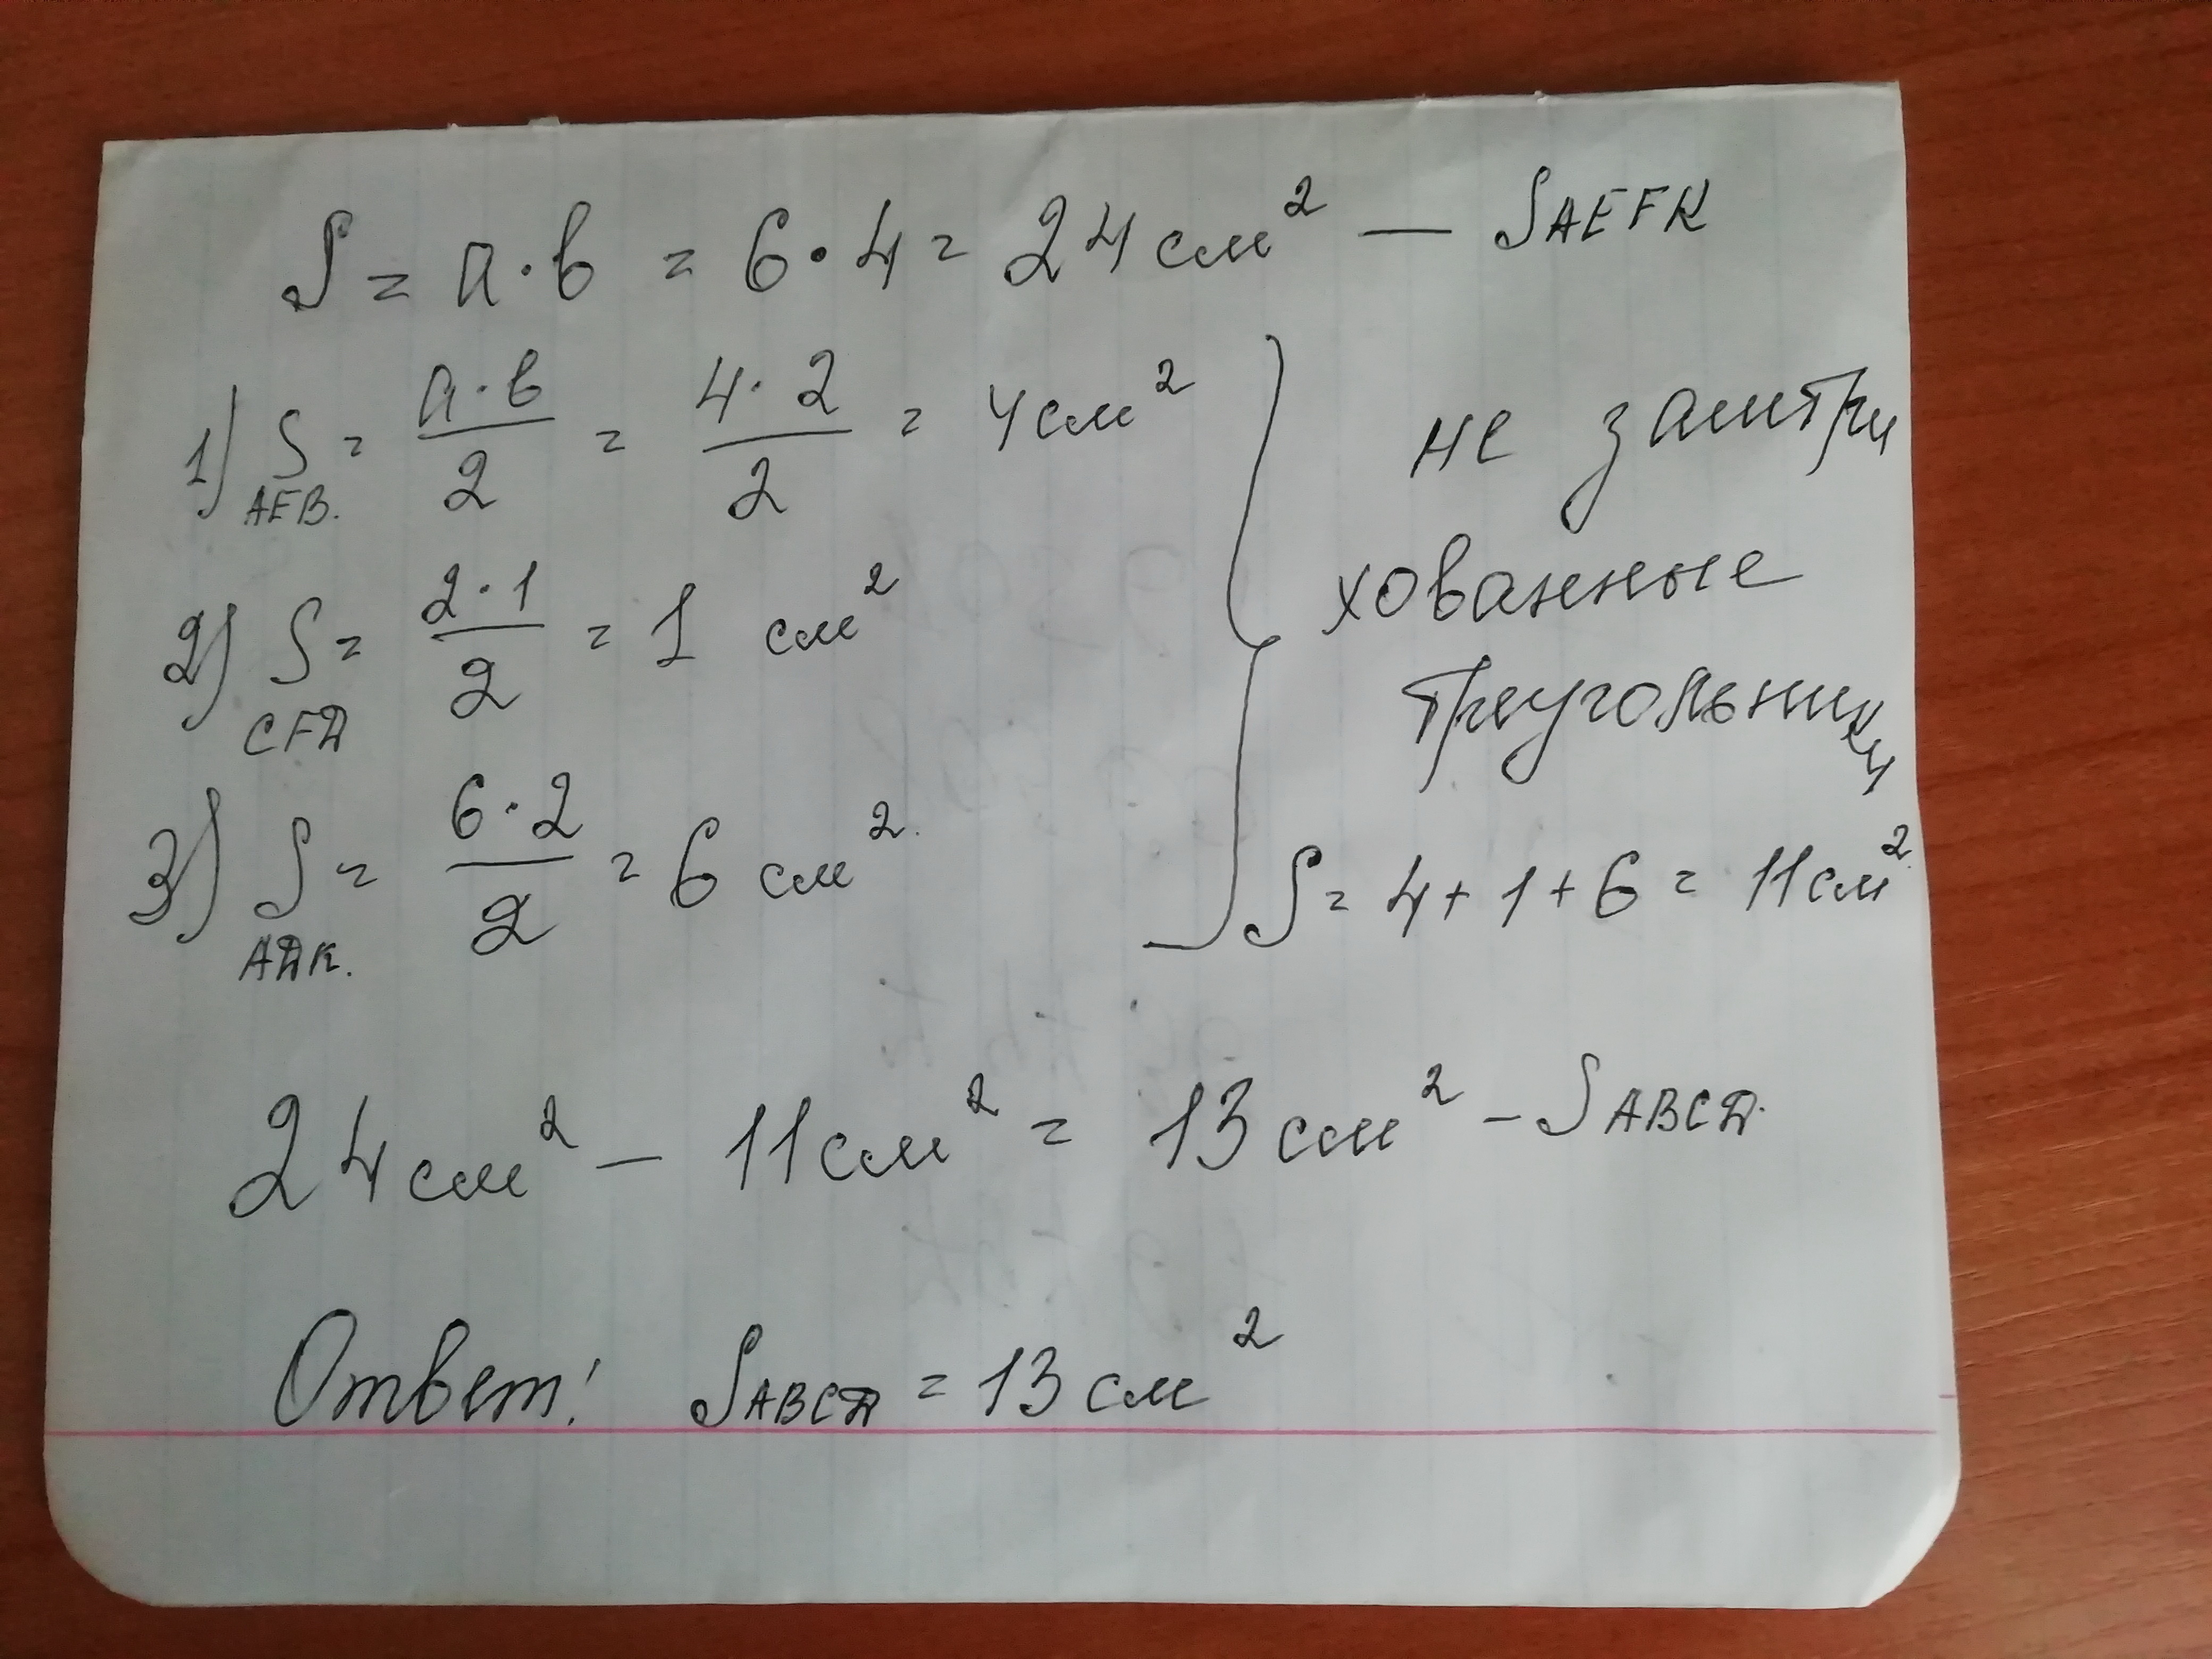 S = a·b = 6·4 = 24 см² — SAEFK
1) S AEB. = a·b/2 = 4·2/2 = 4 см²
2) S CFD = 2·1/2 = 1 см²
3) S ADK. = 6·2/2 = 6 см².
не заштри
хованные
треугольники
S = 4 + 1 + 6 = 11 см²
24 см² — 11 см² = 13 см² — SABCD.
Ответ: SABCD = 13 см²